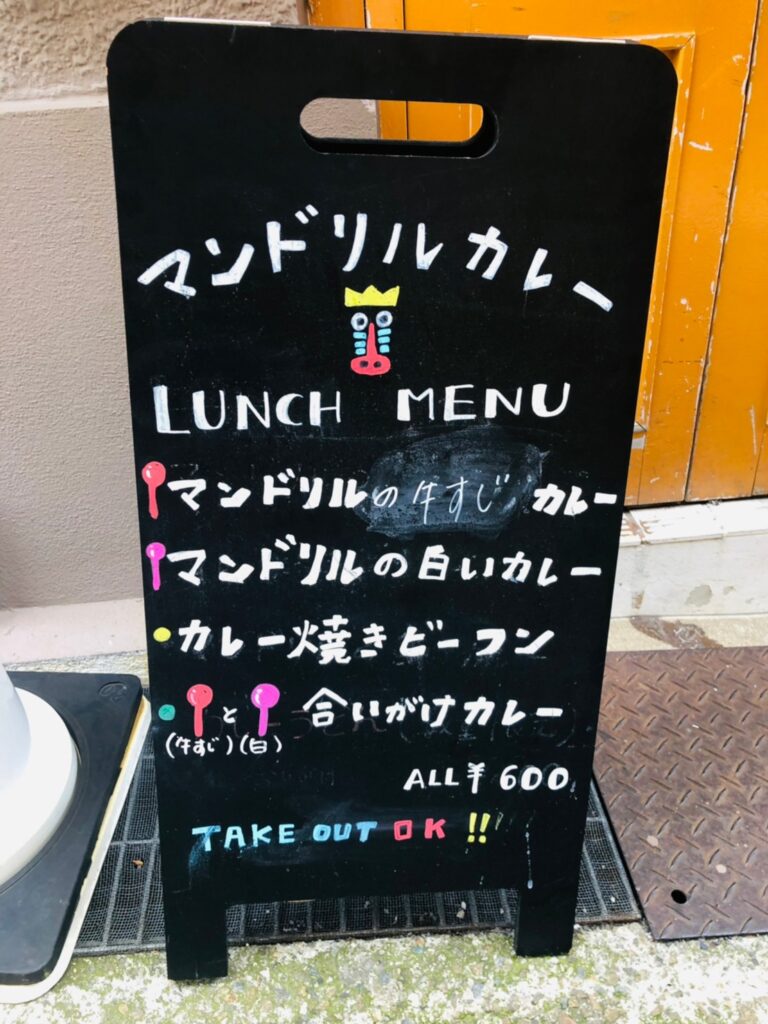 マンドリルカレー
LUNCH MENU
マンドリルの牛すじカレー
マンドリルの白いカレー
カレー焼きビーフン
と 合いがけカレー
(牛すじ)(白)
ALL ¥600
TAKE OUT OK !!